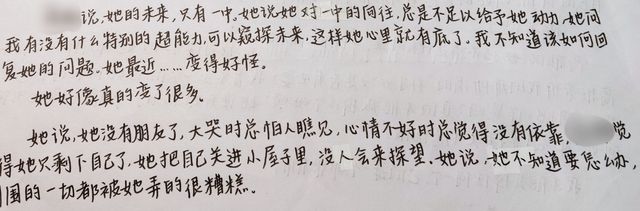 说,她的未来,只有一中。她说她对一中的向往,总是不足以给予她动力,她问
我有没有什么特别的超能力,可以窥探未来,这样她心里就有底了。我不知道该如何回
复她的问题。她最近……变得好怪。
她好像真的变了很多。
她说,她没有朋友了,大哭时总怕人瞧见,心情不好时总觉得没有依靠,觉
得她只剩下自己了,她把自己关进小屋子里,没人会来探望。她说,她不知道要怎么办,
围的一切都被她弄的很糟糕。